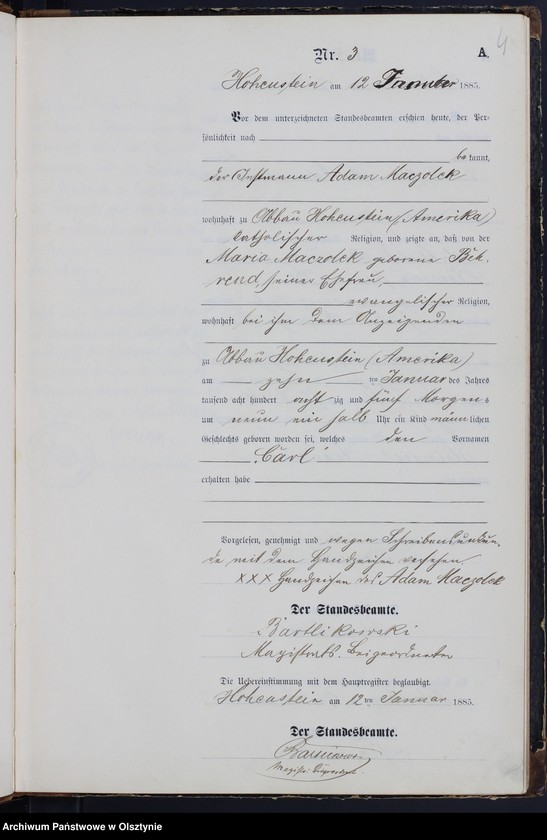 4
Nr. 3
A.
Hohenstein am 12 Januar 1885.
Vor dem unterzeichneten Standesbeamten erschien heute, der Per-
sönlichkeit nach
be kannt,
der Instmann Adam Maczolek
wohnhaft zu Abbau Hohenstein (Amerika)
katholischer Religion, und zeigte an, daß von der
Maria Maczolek geborene Beh-
rend, seiner Ehefrau,
evangelischer Religion,
wohnhaft bei ihm dem Anzeigenden
zu Abbau Hohenstein (Amerika)
am zehn ten Januar des Jahres
tausend acht hundert acht zig und fünf Morgens
um neun ein halb Uhr ein Kind männlichen
Geschlechts geboren worden sei, welches den Vornamen
Carl
erhalten habe
Vorgelesen, genehmigt und wegen Schreibensunkun-
de mit dem Handzeichen versehen
XXX Handzeichen des Adam Maczolek
Der Standesbeamte.
Bartlikowski
Magistrats-Beigeordneter
Die Uebereinstimmung mit dem Hauptregister beglaubigt.
Hohenstein am 12ten Januar 1885.
Der Standesbeamte.
Archiwum Państwowe w Olsztynie